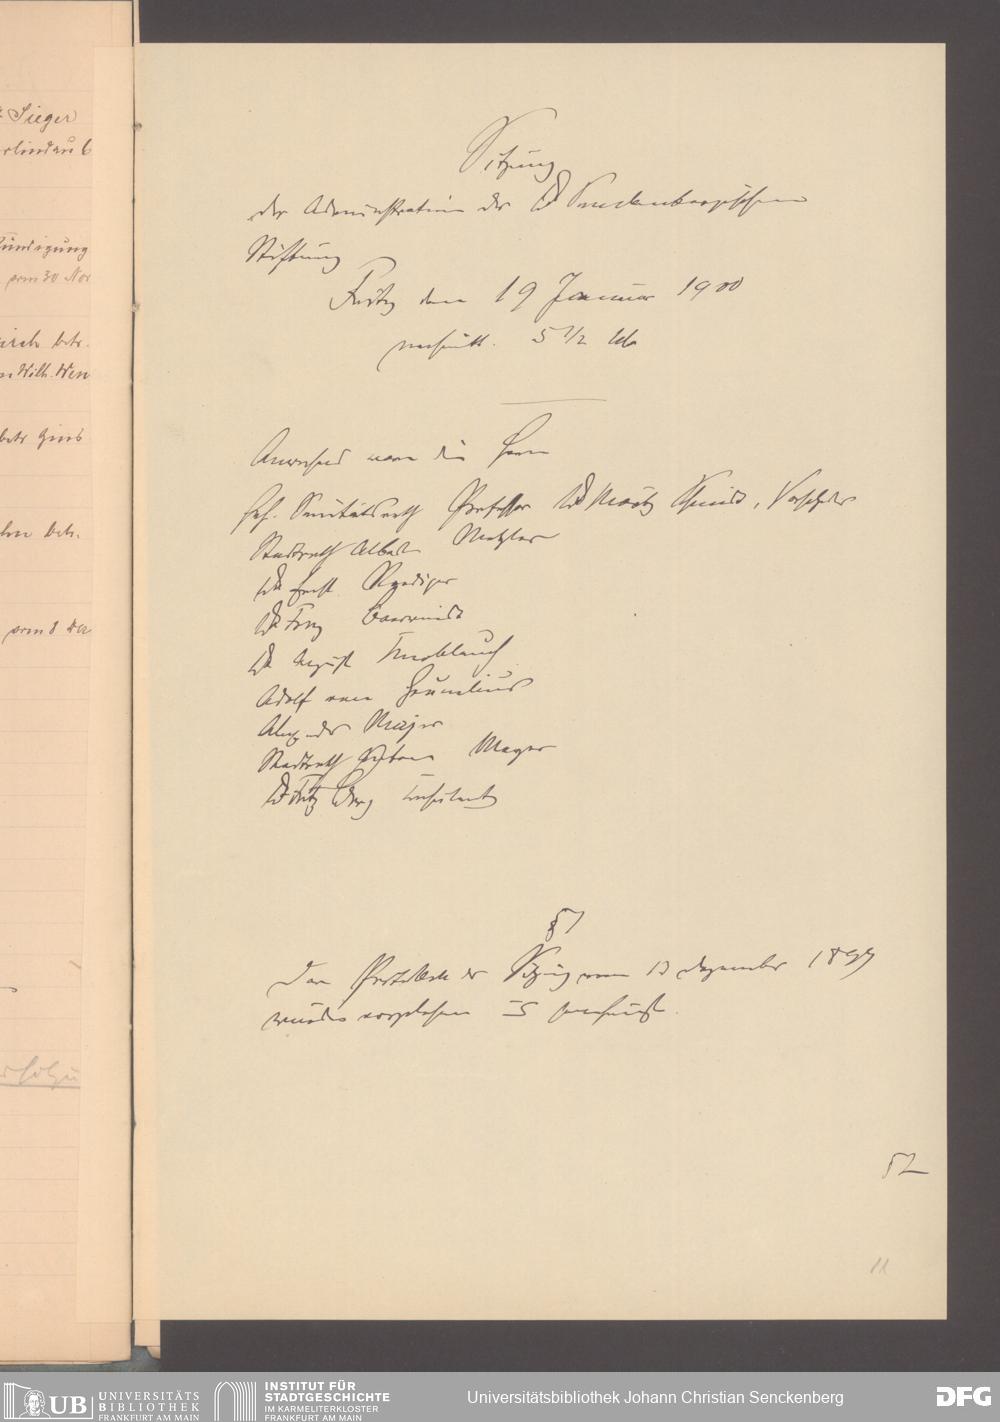 Sieger
Kündigung
vom 30 Nov
betr.
Wilh. Wen
betr Zins
betr.
vom 8 De
Sitzung
der Administration der Dr Senckenbergischen
Stiftung
Freitag den 19 Januar 1900
nachmitt. 5 1/2 Uhr
Anwesend waren die Herrn
Geh. Sanitätsrath Professor Dr Moritz Schmidt, Vorsitzender
Stadtrath Albert Metzler
Dr Ernst Roediger
Dr Franz
Dr August Knoblauch
Adolf von Grunelius
Alexander Majer
Stadtrath Mayer
Dr Fritz Berg Consulent
§ 1
Das Protokoll der Sitzung vom 13 Dezember 1899
wurde vorgelesen u genehmigt.
§ 2
11
UB UNIVERSITÄTS
BIBLIOTHEK
FRANKFURT AM MAIN
INSTITUT FÜR
STADTGESCHICHTE
IM KARMELITERKLOSTER
FRANKFURT AM MAIN
Universitätsbibliothek Johann Christian Senckenberg
DFG